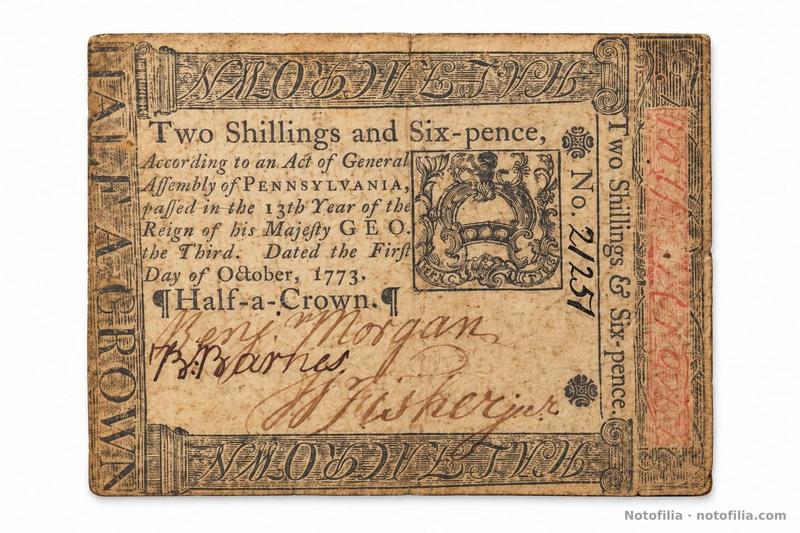 HALF A CROWN
HALF A CROWN
Two Shillings and Six-pence,
According to an Act of General
Aſſembly of PENNSYLVANIA,
paſſed in the 13th Year of the
Reign of his Majeſty GEO.
the Third. Dated the Firſt
Day of October, 1773.
¶Half-a-Crown.¶
No. 21251
Two Shillings & Six-pence.
Benj.n Morgan
B. Barnes
Fisher jur
HALF A CROWN
Notofilia · notofilia.com